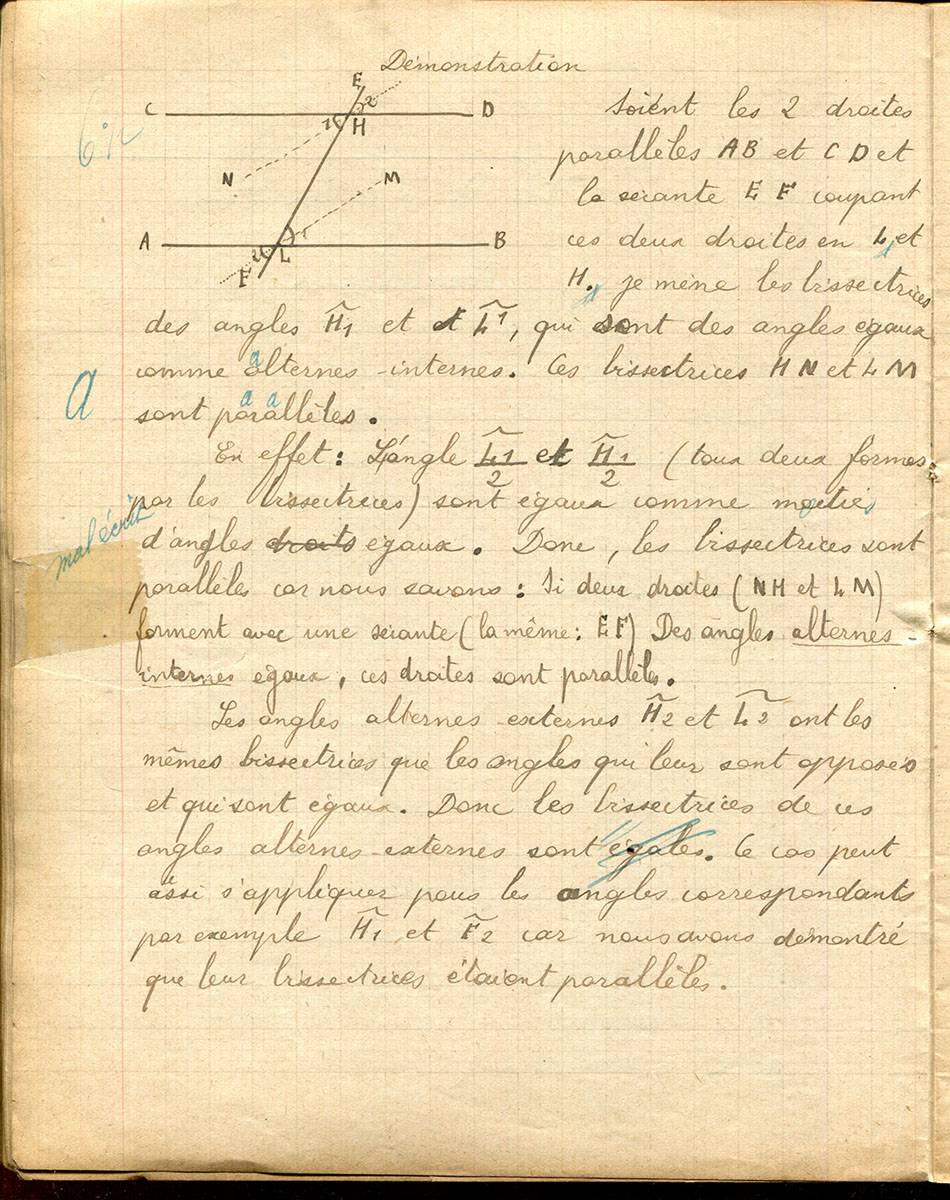 Démonstration
E
C
2
D
1
H
N
M
A
1
B
2
L
F
Soient les 2 droites
parallèles AB et CD et
la sécante EF coupant
ces deux droites en L et
H. je mène les bissectrices
des angles Ĥ1 et L̂1, qui sont des angles égaux
comme alternes-internes. Ces bissectrices HN et LM
a
a
a a
sont parallèles.
En effet : L'angle L̂1/2 et Ĥ1/2 (tous deux formés
par les bissectrices) sont égaux comme moitiés
mal écrit
d'angles droits egaux. Donc, les bissectrices sont
parallèles car nous savons : Si deux droites (NH et LM)
forment avec une sécante (la même : EF) Des angles alternes-
internes egaux, ces droites sont parallèles.
Les angles alternes externes Ĥ2 et L̂2 ont les
mêmes bissectrices que les angles qui leur sont opposés
et qui sont égaux. Donc les bissectrices de ces
angles alternes-externes sont égales. Ce cas peut
aussi s'appliquer pour les angles correspondants
par exemple Ĥ1 et F̂2 car nous avons démontré
que leur bissectrices étaient parallèles.